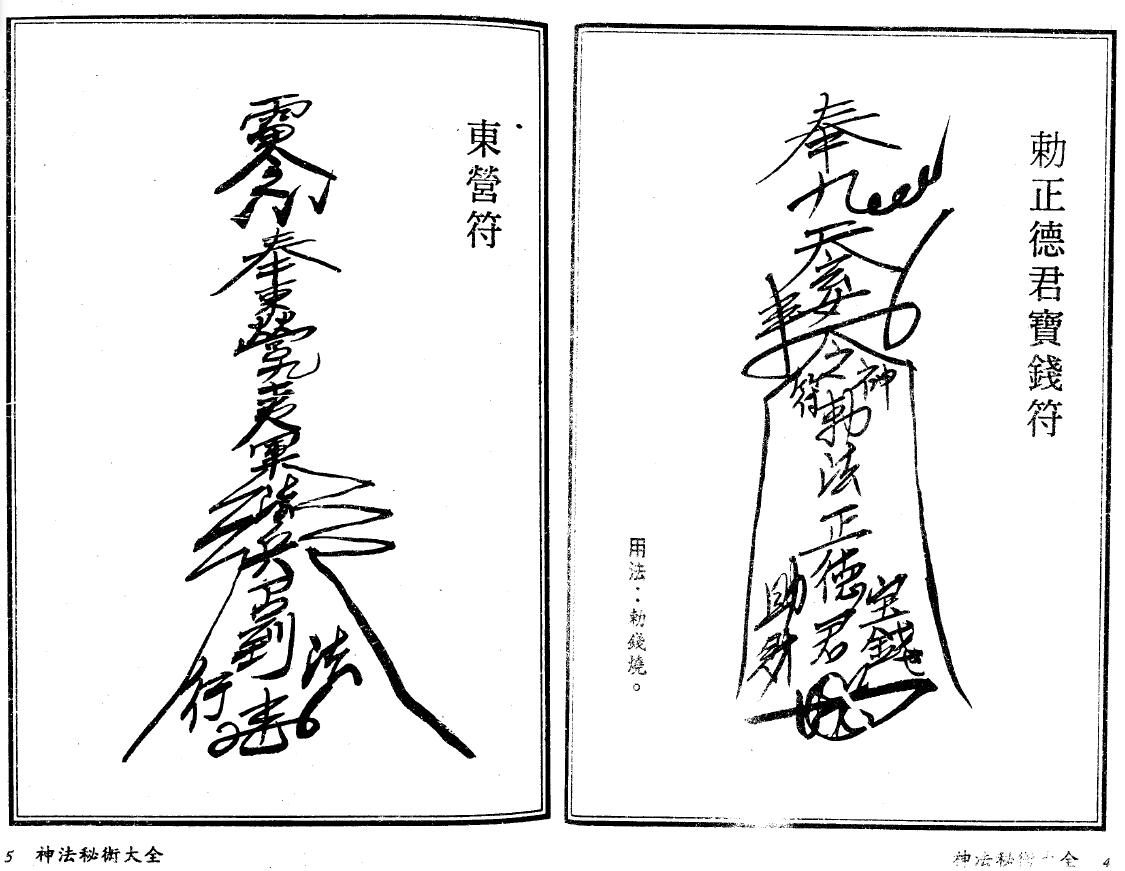 勅正德君寶錢符
奉九天玄女
神
符
勅法正德君
宝錢
助財
用法：勅錢燒。
神法秘術大全 4
東營符
奉東營九夷軍
兵
到
法
行
5 神法秘術大全